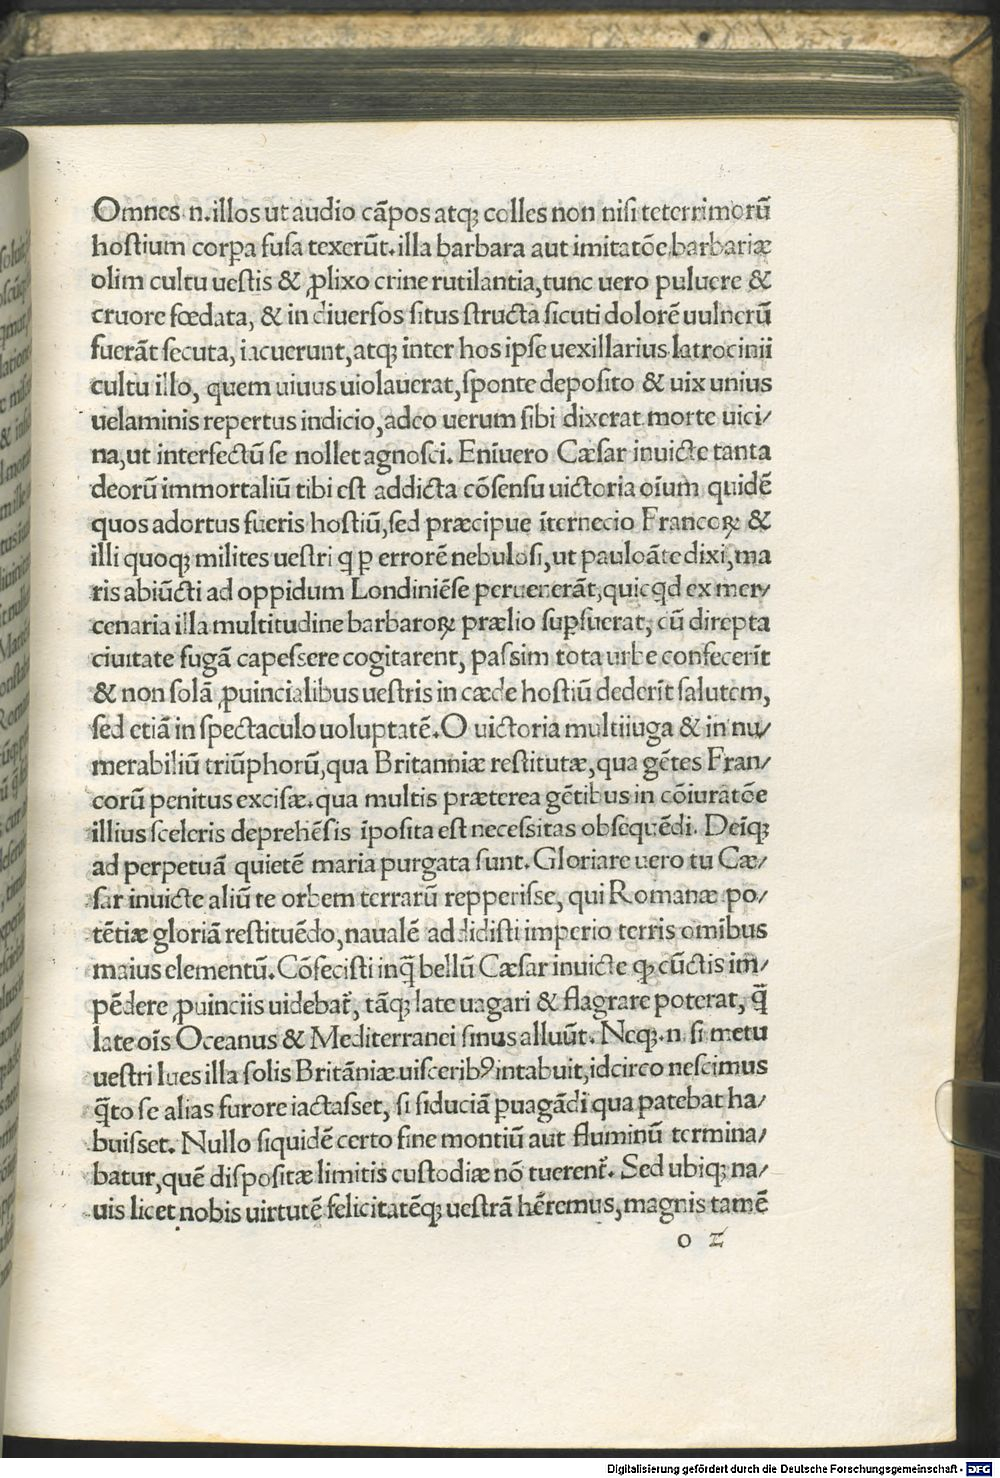 Omnes .n. illos ut audio cãpos atq; colles non nisi teterrimorũ
hostium corpa fusa texerũt. illa barbara aut imitatõe barbariæ
olim cultu uestis & ꝓlixo crine rutilantia, tunc uero puluere &
cruore fœdata, & in diuersos situs structa sicuti dolorẽ uulnerũ
fuerãt secuta, iacuerunt, atq; inter hos ipse uexillarius latrocinii
cultu illo, quem uiuus uiolauerat, sponte deposito & uix unius
uelaminis repertus indicio, adeo uerum sibi dixerat morte uici/
na, ut intersectũ se nollet agnosci. Enĩuero Cæsar inuicte tanta
deorũ immortaliũ tibi est addicta cõsensu uictoria oĩum quidẽ
quos adortus fueris hostiũ, sed præcipue ĩternecio Francoꝝ &
illi quoq; milites uestri q ꝑ errorẽ nebulosi, ut pauloãte dixi, ma
ris abiũcti ad oppidum Londiniẽse peruenerãt, quicqd ex mer/
cenaria illa multitudine barbaroꝝ prælio suꝑfuerat, cũ direpta
ciuitate fugã capessere cogitarent, passim tota urbe confecerĩt
& non solã ꝓuincialibus uestris in cæde hostiũ dederĩt salutem,
sed etiã in spectaculo uoluptatẽ. O uictoria multiiuga & in nu/
merabiliũ triũphorũ, qua Britanniæ restitutæ, qua gẽtes Fran/
corũ penitus excisæ. qua multis præterea gẽtibus in cõiuratõe
illius sceleris deprehẽsis ĩposita est necessitas obsequẽdi. Deĩq;
ad perpetuã quietẽ maria purgata sunt. Gloriare uero tu Cæ/
sar inuicte aliũ te orbem terrarũ repperisse, qui Romanæ po/
tẽtiæ gloriã restituẽdo, naualẽ addidisti imperio terris omĩbus
maius elementũ. Cõfecisti inq̃ bellũ Cæsar inuicte q, cũctis im/
pẽdere ꝓuinciis uidebat̃, tãq; late uagari & flagrare poterat, q̃
late oĩs Oceanus & Mediterranei sinus alluũt. Neq; .n. si metu
uestri lues illa solis Britãniæ uiscerib9 intabuit, idcirco nescimus
q̃to se alias furore iactasset, si fiduciã ꝑuagãdi qua patebat ha/
buisset. Nullo siquidẽ certo fine montiũ aut fluminũ termina/
batur, quẽ dispositæ limitis custodiæ nõ tuerent̃. Sed ubiq; na/
uis licet nobis uirtutẽ felicitatẽq; uestrã hẽremus, magnis tamẽ
o 2
Digitalisierung gefördert durch die Deutsche Forschungsgemeinschaft - DFG